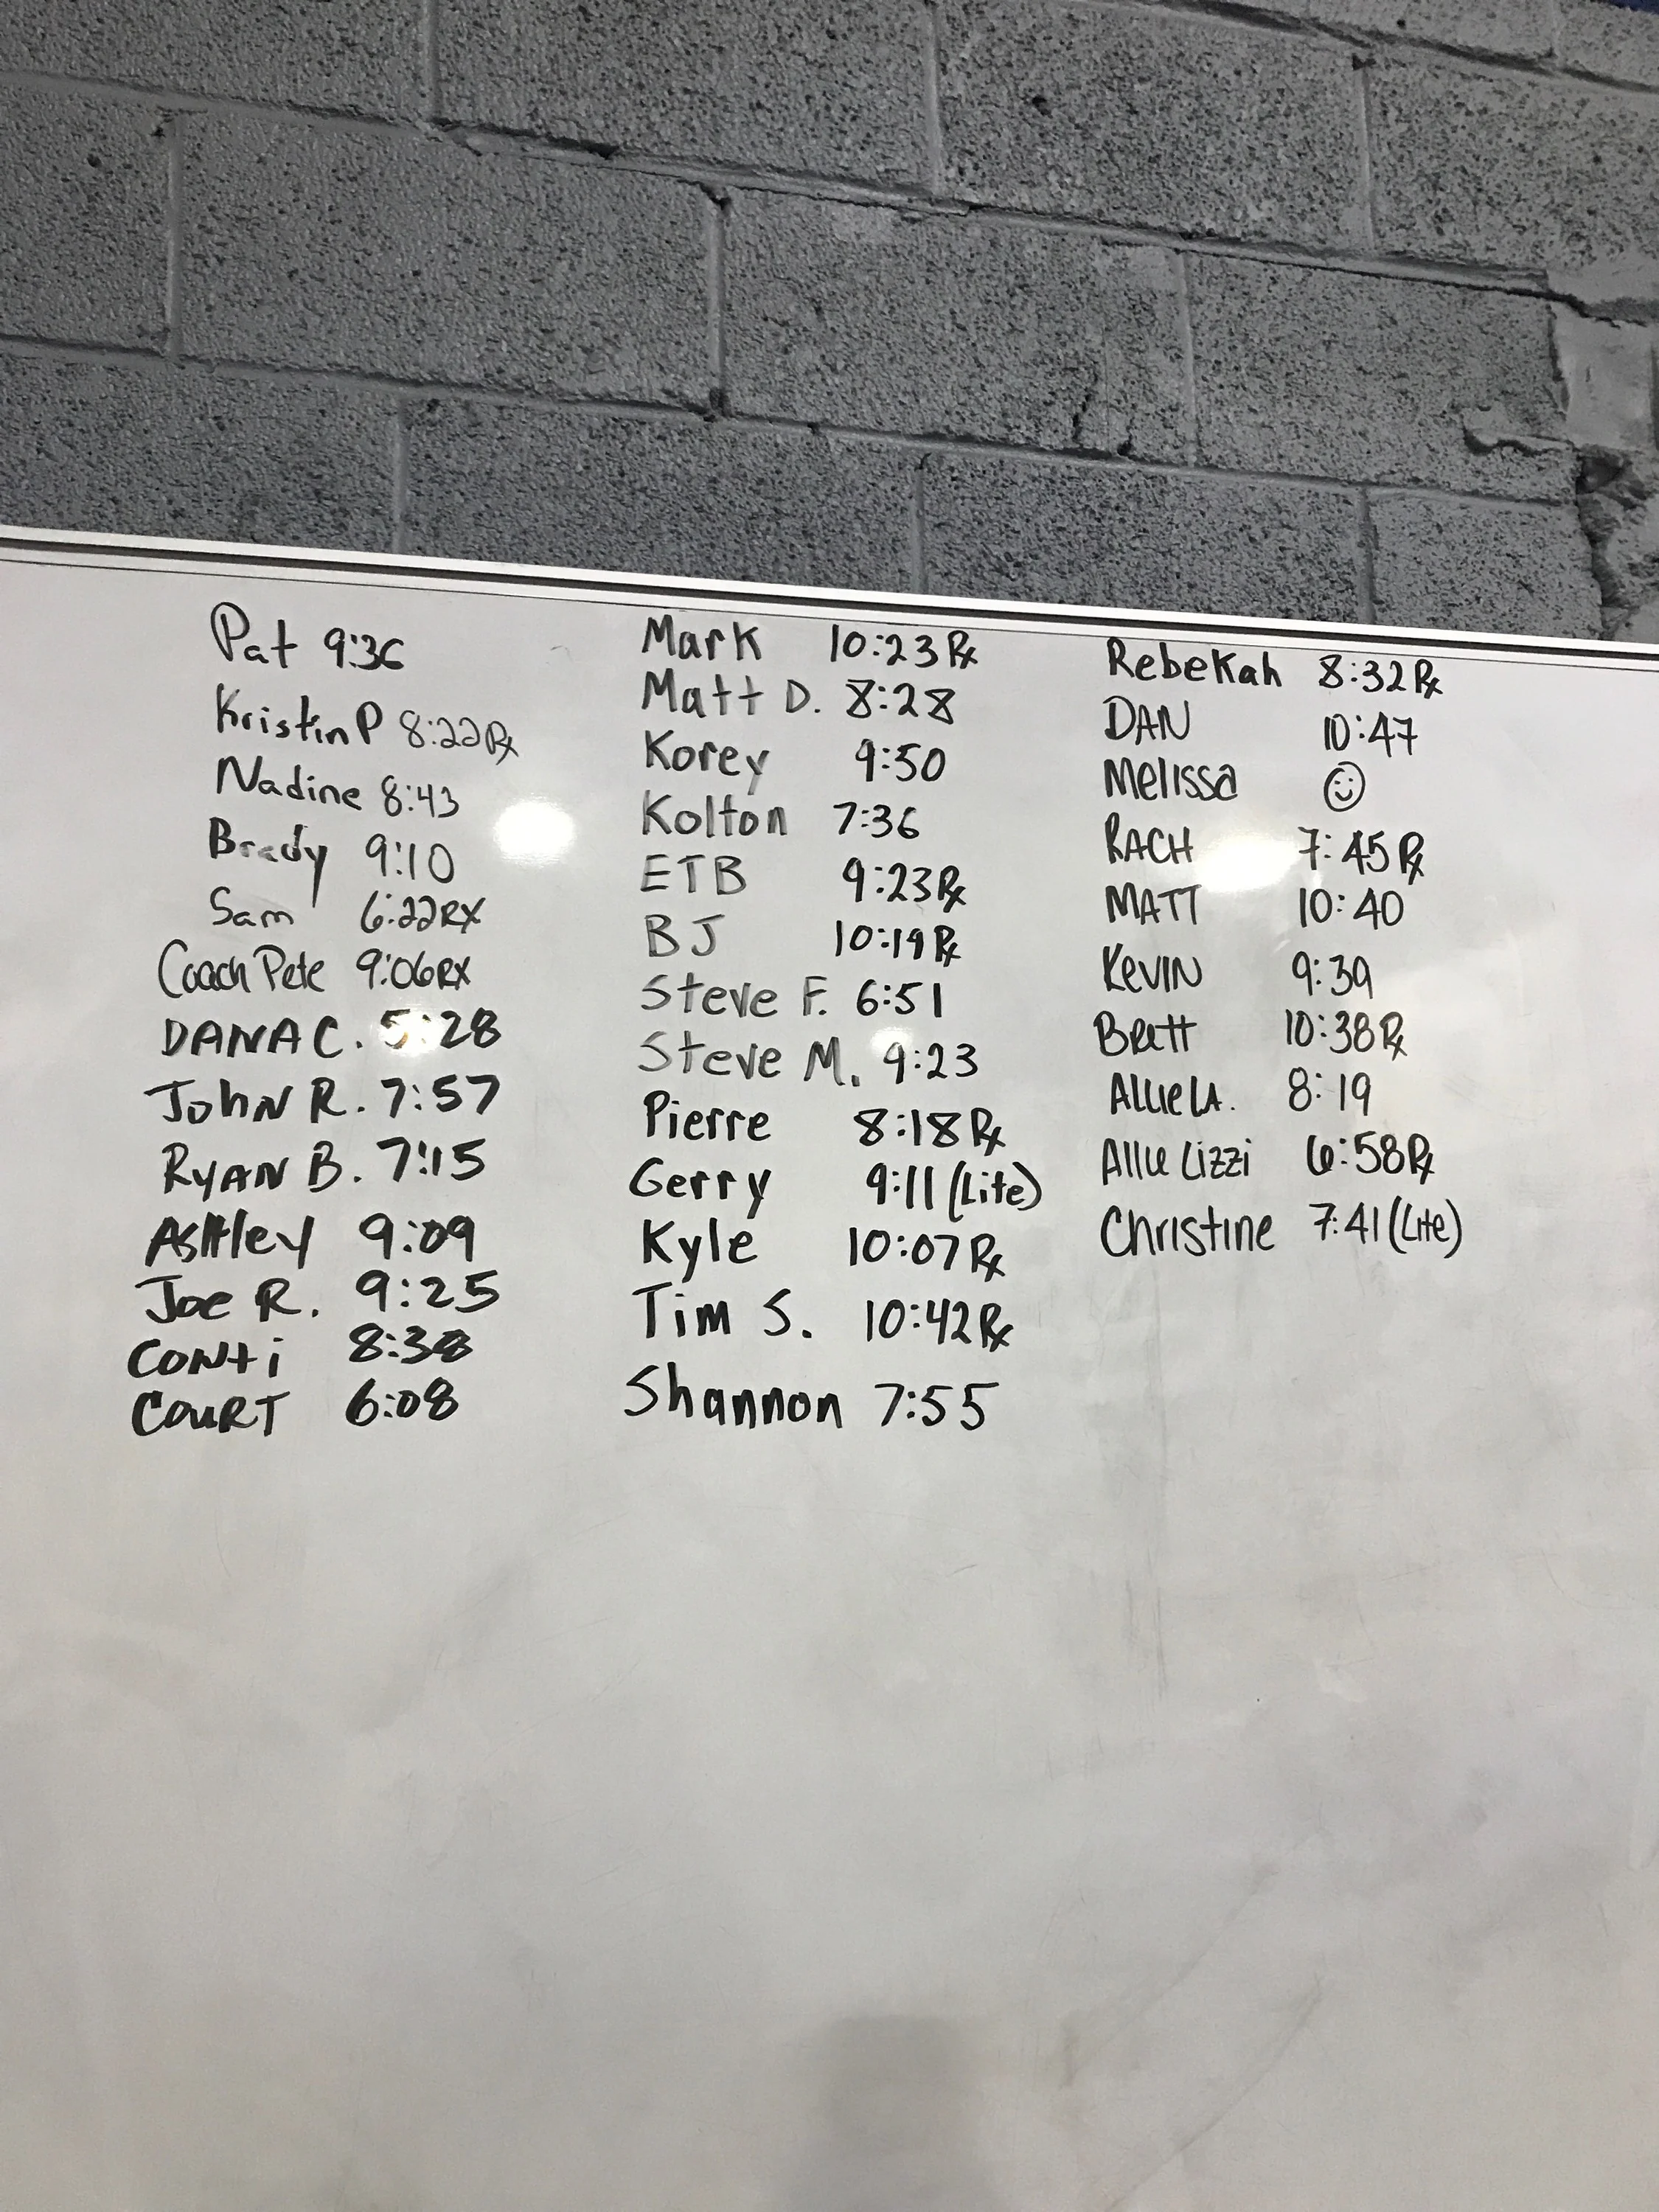 Pat 9:36
Kristin P 8:22 Rx
Nadine 8:43
Brady 9:10
Sam 6:22 RX
Coach Pete 9:06 RX
DANA C. 5:28
JOHN R. 7:57
RYAN B. 7:15
ASHley 9:09
Joe R. 9:25
CONti 8:38
COURT 6:08
Mark 10:23 Rx
Matt D. 8:28
Korey 9:50
Kolton 7:36
ETB 9:23 Rx
BJ 10:19 Rx
Steve F. 6:51
Steve M. 9:23
Pierre 8:18 Rx
Gerry 9:11 (Lite)
Kyle 10:07 Rx
Tim S. 10:42 Rx
Shannon 7:55
Rebekah 8:32 Rx
DAN 10:47
Melissa ☺
RACH 7:45 Rx
MATT 10:40
KEVIN 9:39
Brett 10:38 Rx
Allie LA. 8:19
Allie Lizzi 6:58 Rx
Christine 7:41 (Lite)